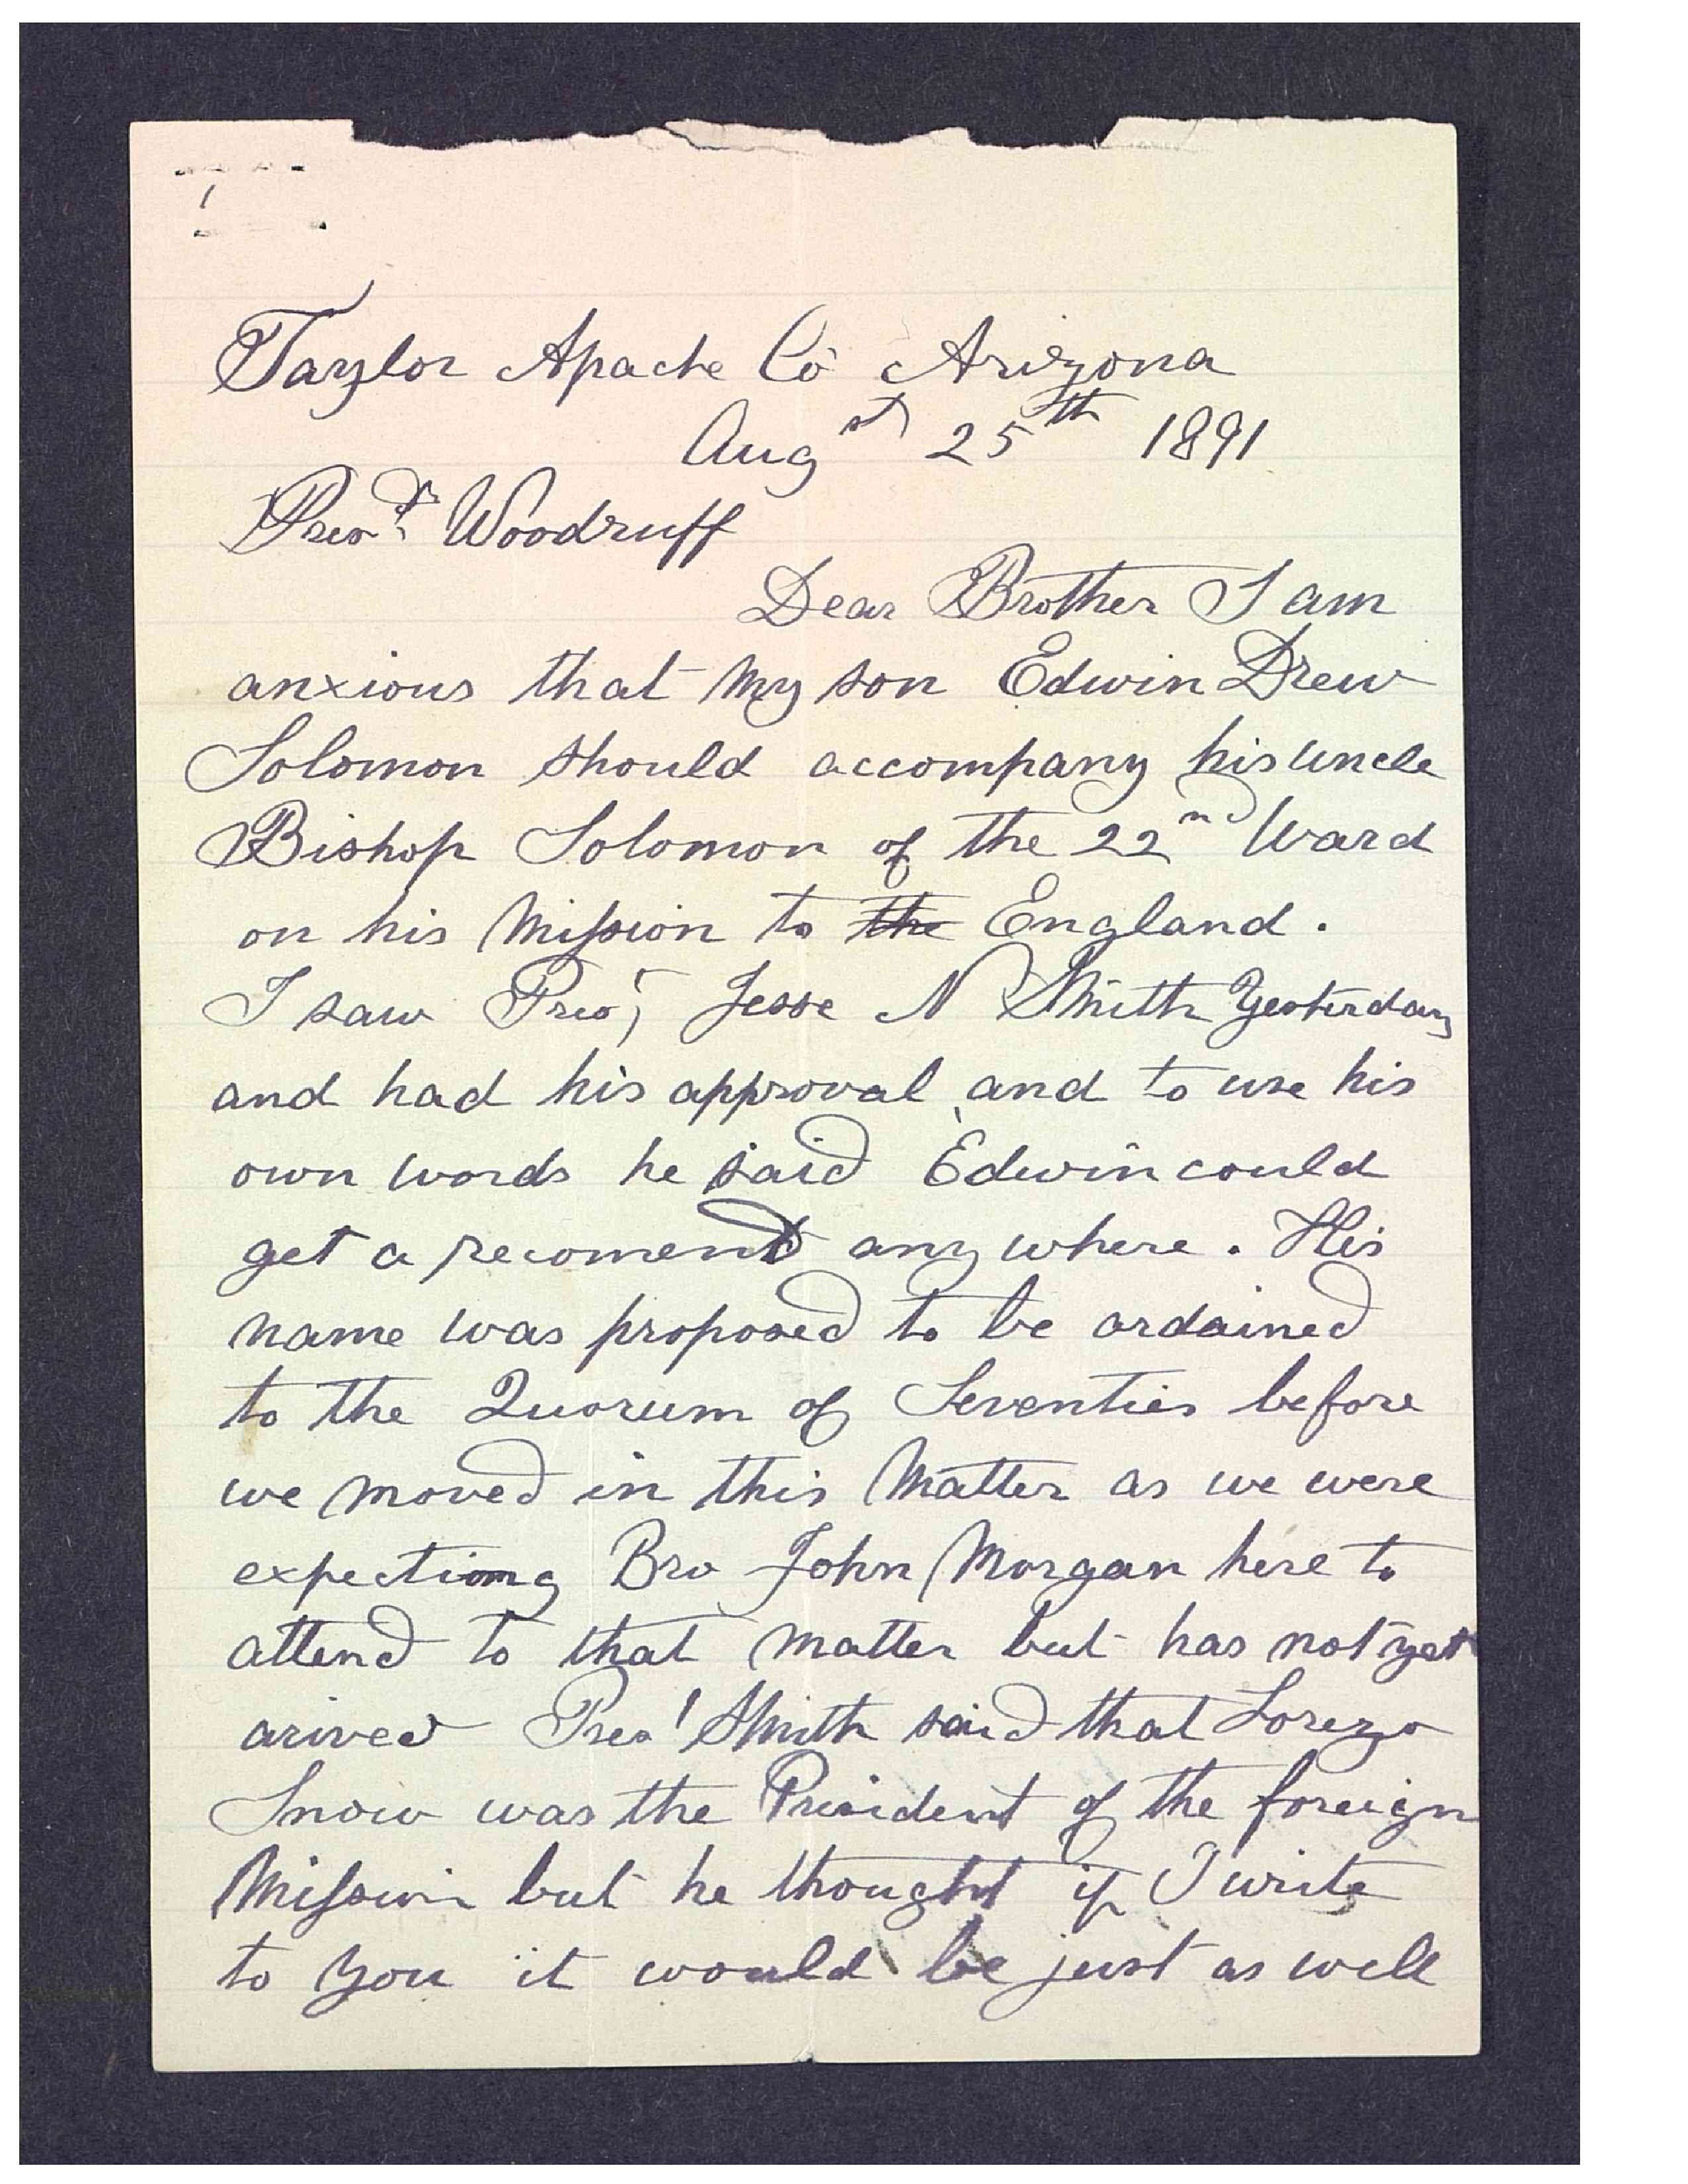 Taylor Apache Co Arizona
Augst 25th 1891
Prest Woodruff
Dear Brother I am
anxious that my son Edwin Drew
Solomon should accompany his uncle
Bishop Solomon of the 22nd Ward
on his Mission to the England.
I saw Pres; Jesse N Smith Yesterday
and had his approval, and to use his
own words he said Edwin could
get a recomend any where. His
name was proposed to be ordained
to the Quorum of Seventies before
we moved in this Matter as we were
expectiong Bro John Morgan here to
attend to that Matter but has not yet
arived Pres' Smith said that Lorezo
Snow was the President of the foreign
Mission but he thought if I write
to you it would be just as well